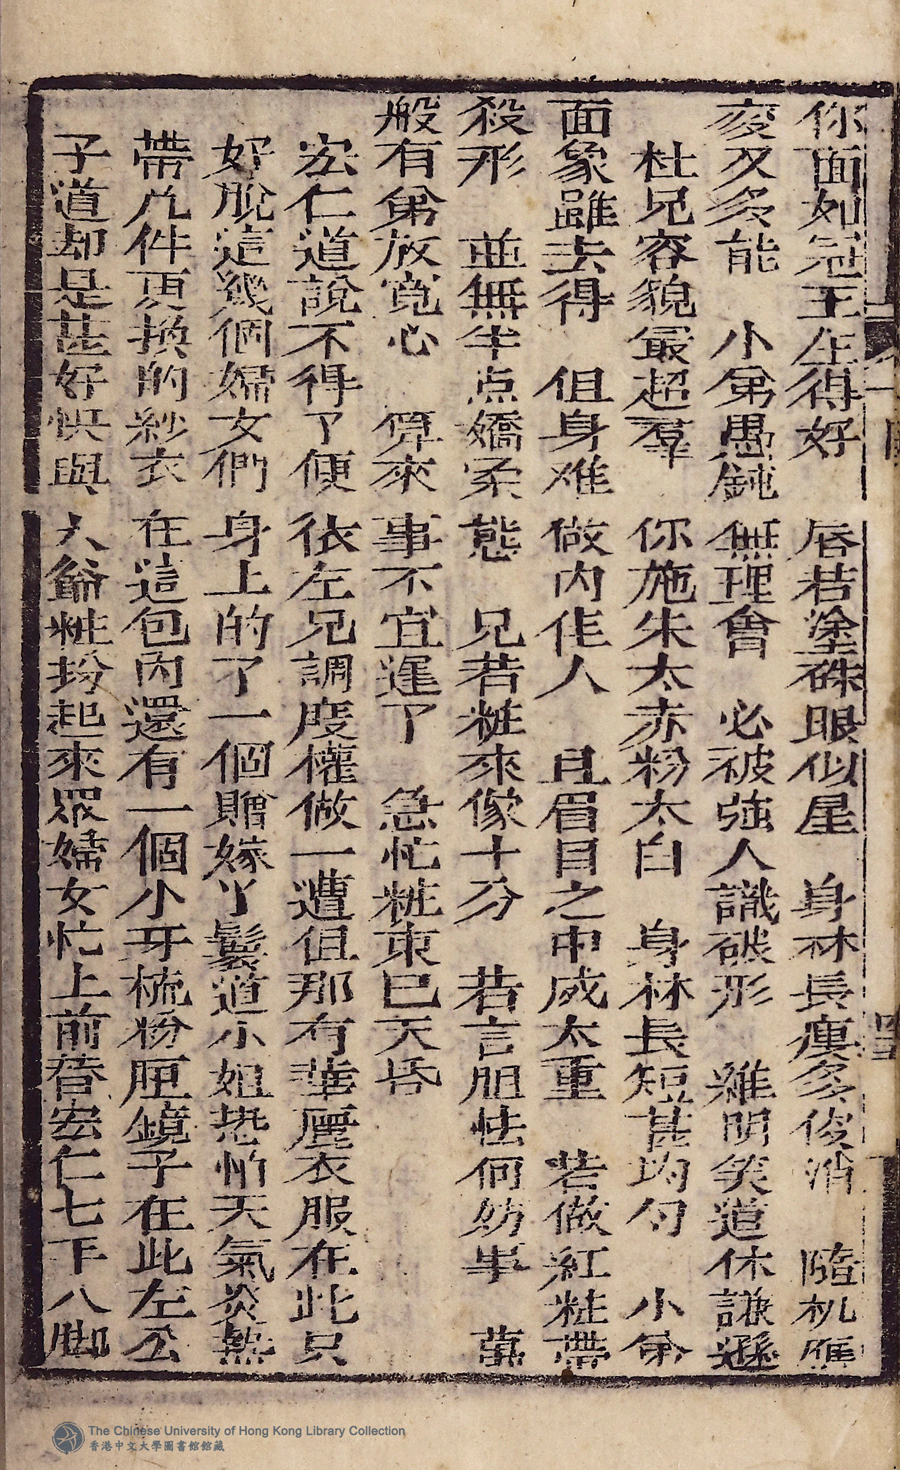 你面如冠玉生得好 唇若塗硃眼似星 身材長瘦多俊消 隨机應
变又多能 小弟愚鈍無理會 必被強人識破形 維明笑道休謙遜
杜兄容貌最超羣 你施朱太赤粉太白 身材長短甚均勻 小弟
面象雖去得 但身难做内佳人 且眉目之中威太重 若做紅粧帶
殺形 並無半点嬌柔態 兄若粧來像十分 若言胆怯何妨事 萬
般有弟放寛心 算來事不宜遲了 急忙粧束已天昏
宏仁道說不得了便依左兄調度權做一遭但那有華麗衣服在此只
好脫這幾個婦女們身上的了一個贈嫁丫鬟道小姐恐怕天氣炎熱
帶九件更換的紗衣在這包内還有一個小牙梳粉匣鏡子在此左公
子道却是甚好快與大爺粧扮起來眾婦女忙上前替宏仁七手八脚
The Chinese University of Hong Kong Library Collection
香港中文大學圖書館館藏